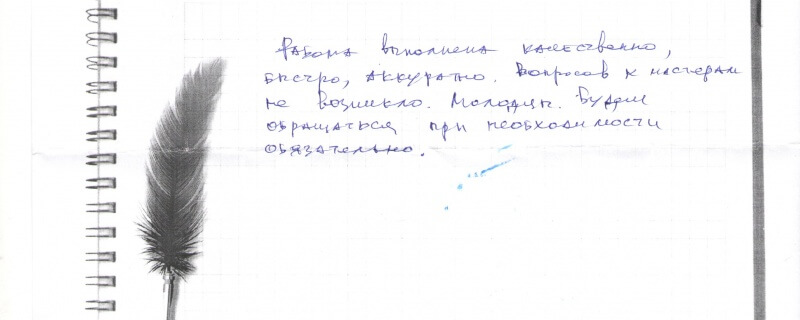 Работа выполнена качественно,
быстро, аккуратно. Вопросов к мастерам
не возникло. Молодцы. Будем
обращаться при необходимости
обязательно.